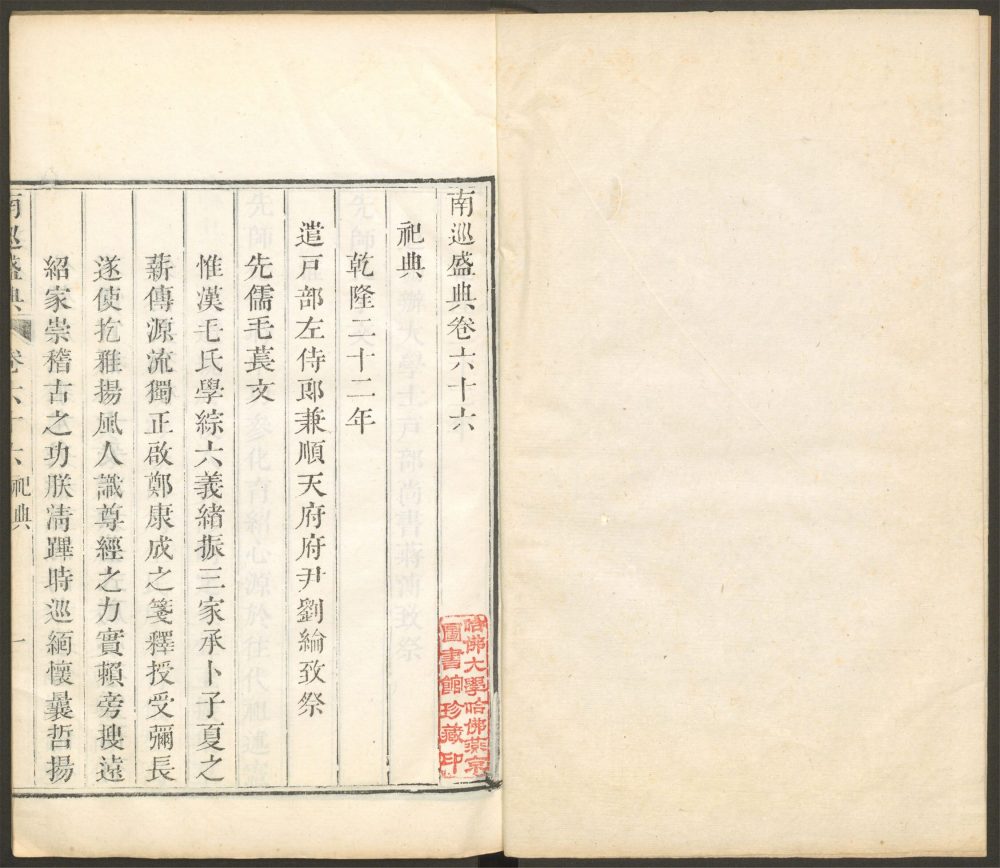 南巡盛典卷六十六
祀典
乾隆二十二年
遣戸部左侍郎兼順天府府尹劉綸致祭
先儒毛萇文
惟漢毛氏學綜六義緒振三家承卜子夏之
薪傳源流獨正啟鄭康成之箋釋授受彌長
遂使扢雅揚風人識尊經之力實賴旁搜遠
紹家崇稽古之功朕清蹕時巡緬懷曩哲揚
南巡盛典 卷六十六 祀典 一
哈佛大學哈佛燕京
圖書館珍藏印